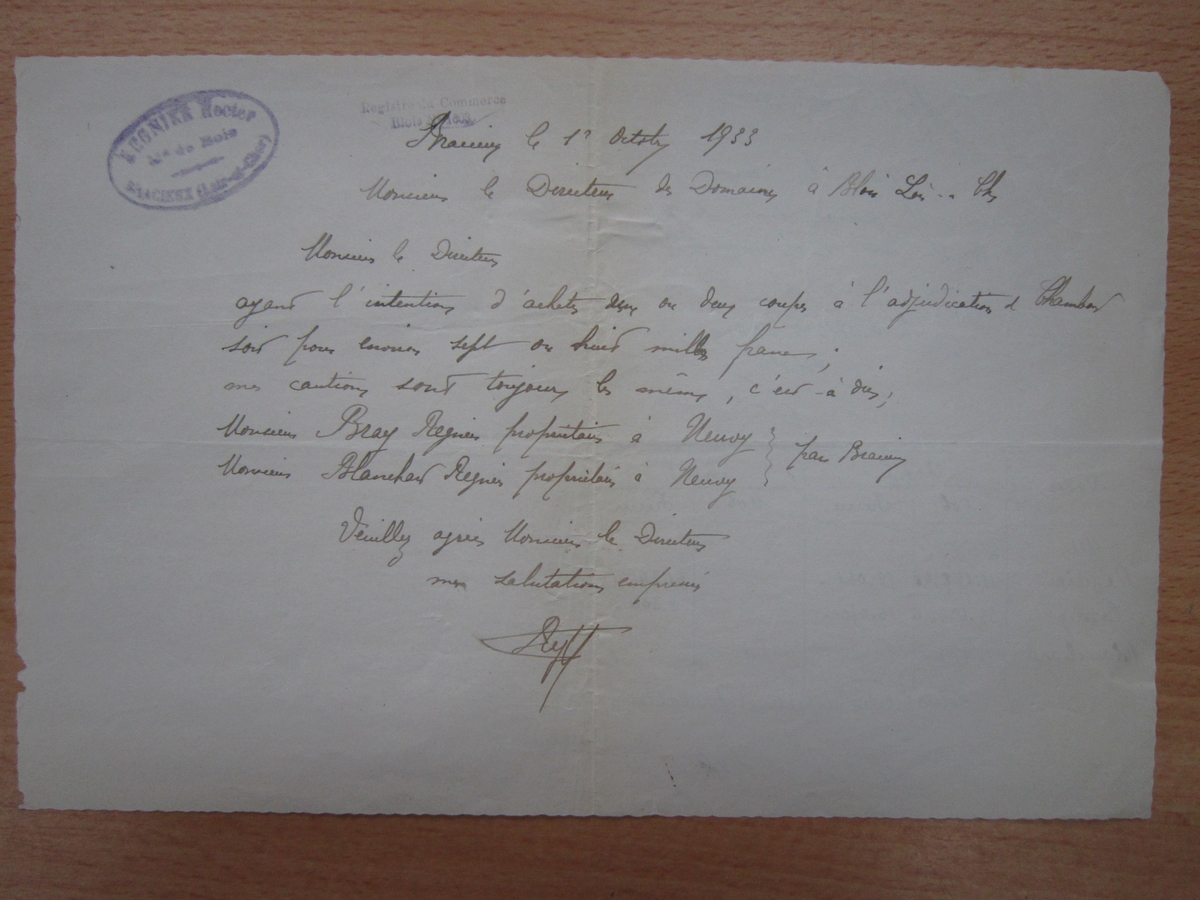 REGNIER Hector
Md de Bois
BRACIEUX (Loir-et-Cher)
Registre du Commerce
Blois
Bracieux le 1er Octobre 1933
Monsieur le Directeur des Domaines à Blois Loir.. Cher
Monsieur le Directeur
ayant l'intention d'acheter une ou deux coupes à l'adjudication de Chambord
soit pour environ sept ou huit milles francs ;
mes cautions sont toujours les mêmes, c'est-à dire ;
Monsieur Bray Regnier propriétaire à Neuvy } par Bracieux
Monsieur Blanchard Regnier propriétaire à Neuvy
Veuillez agréer Monsieur le Directeur
mes salutations empressées